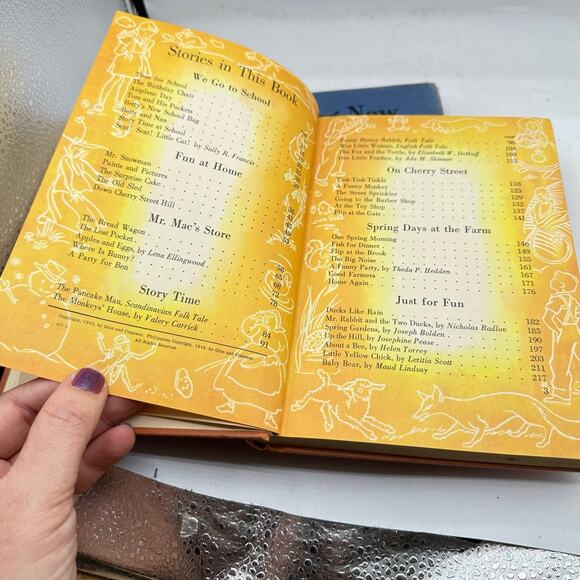 Stories in This Book
We Go to School
Time for School
The Birthday Chair
Airplane Day
Tom and His Pockets
Betty's New School Bag
Betty and Nan
Story Time at School
Scat! Scat! Little Cat! by Sally R. Francis
Fun at Home
Mr. Snowman
Paints and Pictures
The Surprise Cake
The Old Sled
Down Cherry Street Hill
Mr. Mac's Store
The Bread Wagon
The Lost Pocket
Apples and Eggs, by Lena Ellingwood
Where Is Bunny?
A Party for Ben
58
65
68
72
78
Story Time
The Pancake Man, Scandinavian Folk Tale 84
The Monkeys' House, by Valery Carrick 91
All Rights Reserved
New
PAGE
Funny Bunny Rabbit, Folk Tale 96
Wee Little Woman, English Folk Tale 104
The Fox and the Turtle, by Elizabeth W. DeHuff 109
One Little Feather, by Ada M. Skinner 113
On Cherry Street
Tink-Tink-Tinkle 118
A Funny Monkey 123
The Street Sprinkler 127
Going to the Barber Shop 132
At the Toy Shop 137
Flip at the Gate 141
Spring Days at the Farm
One Spring Morning 146
Fish for Dinner 149
Flip at the Brook 155
The Big Noise 161
A Funny Party, by Theda P. Hedden 167
Good Farmers 171
Home Again 176
Just for Fun
Ducks Like Rain 182
Mr. Rabbit and the Two Ducks, by Nicholas Radlov 187
Spring Gardens, by Joseph Bolden 197
Up the Hill, by Josephine Pease 202
About a Bee, by Helen Torrey 203
Little Yellow Chick, by Letitia Scott 211
Baby Bear, by Maud Lindsay 217
3